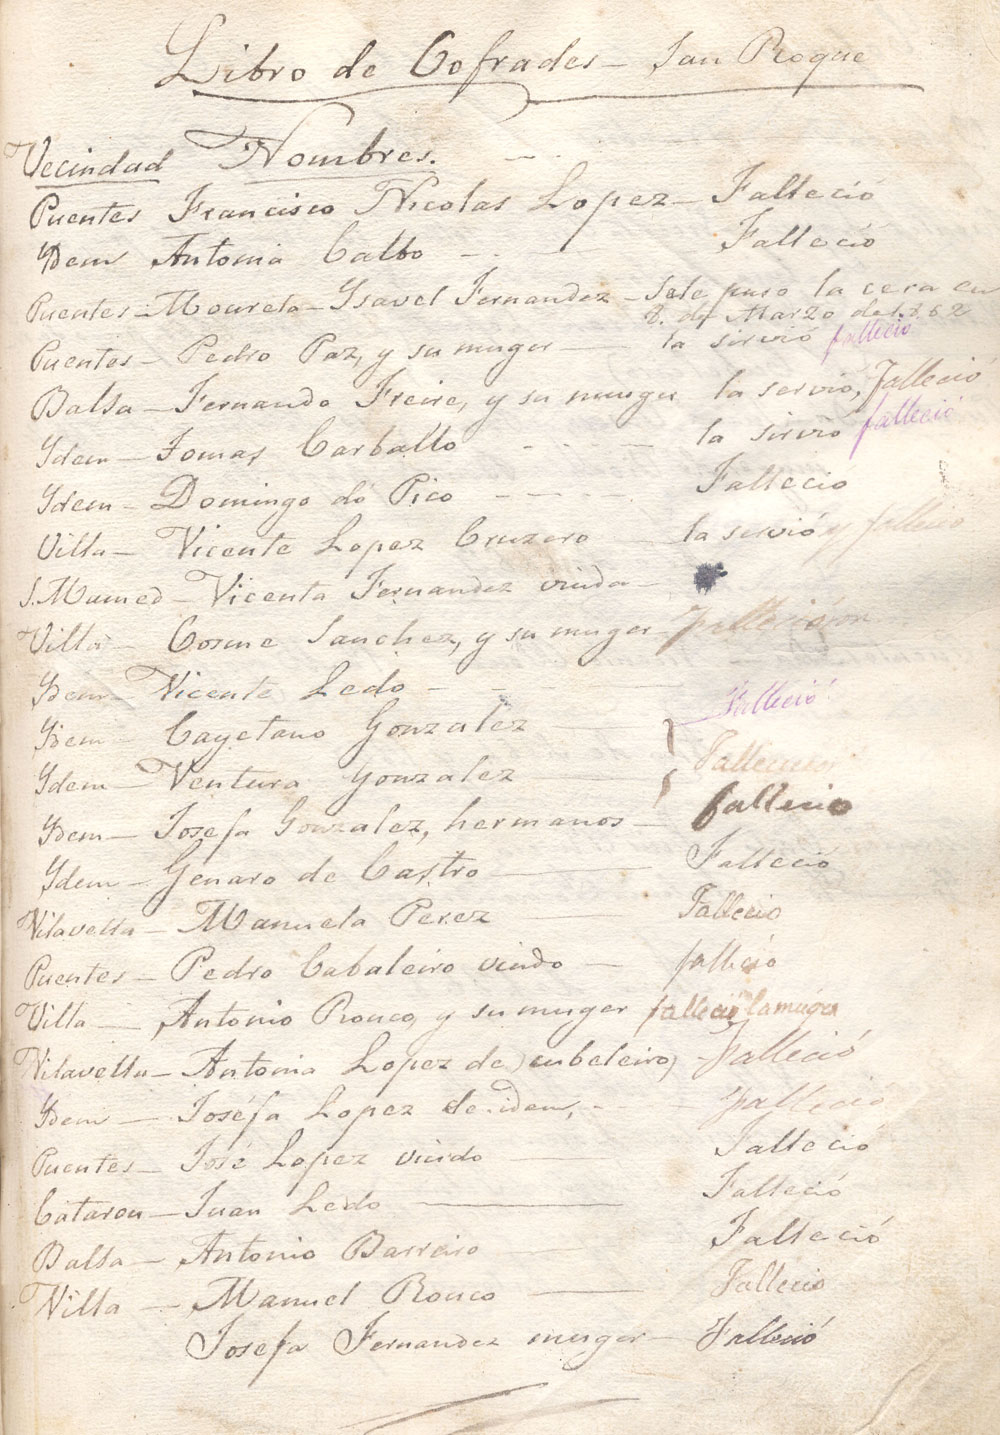 Libro de Cofrades - San Roque
Vecindad Nombres.
Puentes Francisco Nicolas Lopez - Falleció
Ydem Antonia Calbo - Falleció
Puentes - Mourela - Ysavel Fernandez - Sele puso la cera en
2. de Marzo de 1.862
Puentes - Pedro Paz, y su muger - la sirvió falleció
Balsa - Fernando Freire, y su muger la servió, Falleció
Ydem - Tomas Carballo - la sirvió falleció
Ydem - Domingo do Pico - Falleció
Villa - Vicente Lopez Cruzero - la servió y falleció
S. Mamed - Vicenta Fernandez viuda -
Villa - Cosme Sanchez, y su muger - Fallecieron
Ydem - Vicente Ledo -
Ydem - Cayetano Gonzalez - Falleció
Ydem - Ventura Gonzalez -
Ydem - Josefa Gonzalez, hermanos - fallecio
Ydem - Genaro de Castro - Falleció
Vilavella - Manuela Perez - Fallecio
Puentes - Pedro Cabaleiro viudo - falleció
Villa - Antonio Rouco, y su muger falleció la muger
Vilavella - Antonia Lopez de Cubeleiro, - Falleció
Ydem - Joséfa Lopez de idem, - Falleció
Puentes - José Lopez viudo - Falleció
Catarou - Juan Ledo - Falleció
Balsa - Antonio Barreiro - Falleció
Villa - Manuel Rouco - Fallecio
Josefa Fernandez muger - Falleció